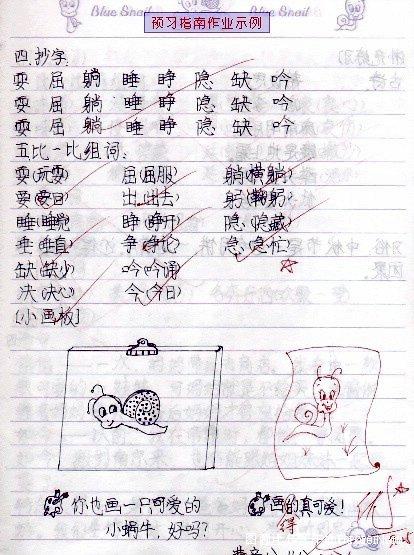 Blue Snail
Blue Snail
预习指南作业示例
四.抄字:
耍 屈 躺 睡 睁 隐 缺 吟
耍 屈 躺 睡 睁 隐 缺 吟
耍 屈 躺 睡 睁 隐 缺 吟
五比一比组词:
耍(玩耍) 屈(屈服) 躺(横躺)
要(要日) 出(出去) 躬(鞠躬)
睡(睡觉) 睁(睁开) 隐(隐藏)
垂(垂直) 争(争论) 急(急忙)
缺(缺少) 吟(吟诵)
决(决心) 今(今日)
[小画板]
你也画一只可爱的 画的真可爱!
小蜗牛,好吗? 得